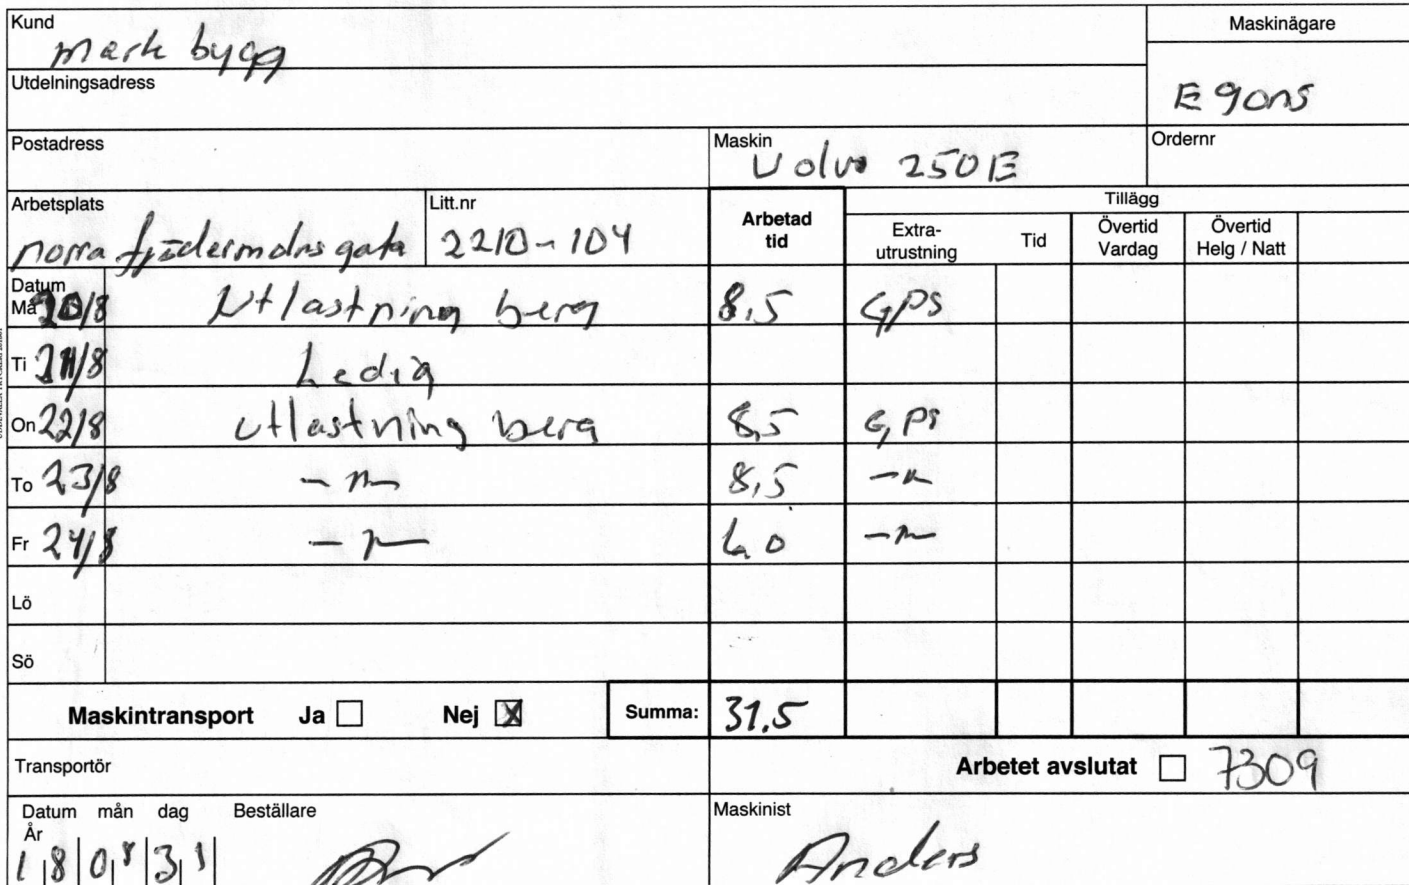 Kund
Maskinägare
mark bygg
Utdelningsadress
Egons
Postadress
Maskin
Volvo 250E
Ordernr
Arbetsplats
Litt.nr
norra fjädermolnsgata
2210-104
Arbetad tid
Tillägg
Extra-utrustning
Tid
Övertid Vardag
Övertid Helg / Natt
Datum
Må 20/8 Utlastning berg 8,5 GPS
Ti 21/8 Ledig
On 22/8 utlastning berg 8,5 GPS
To 23/8 -"- 8,5 -"-
Fr 24/8 -"- 6,0 -"-
Lö
Sö
Maskintransport Ja Nej X Summa: 31,5
Transportör
Arbetet avslutat 7309
Datum mån dag Beställare
År
Maskinist
18 08 31
Anders